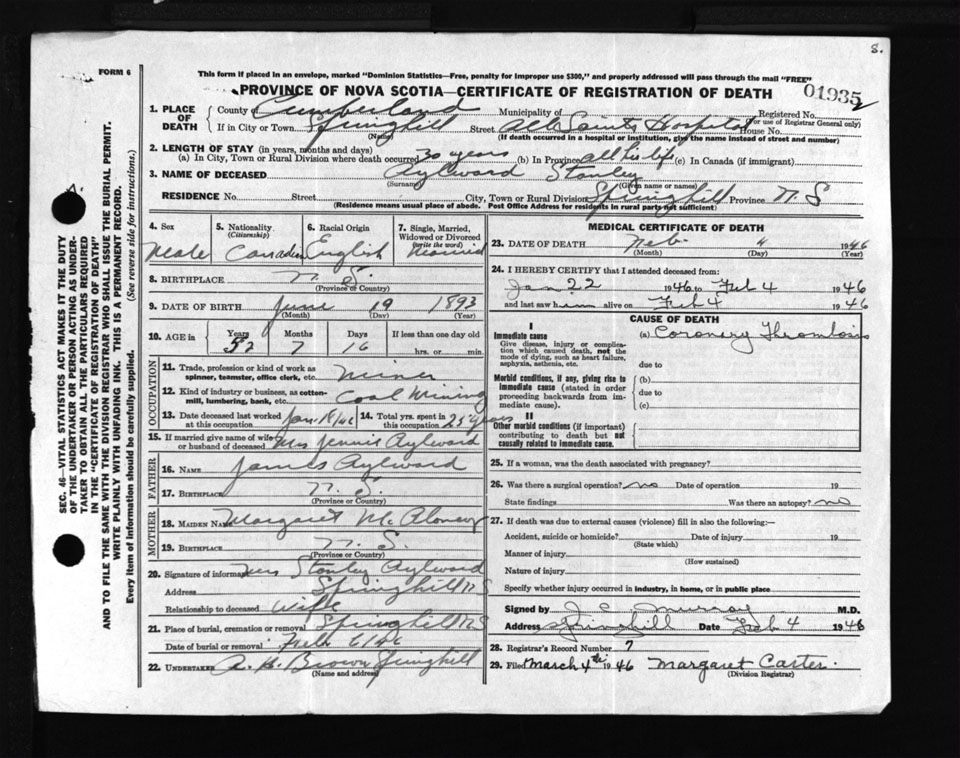 8.
FORM 6
This form if placed in an envelope, marked "Dominion Statistics—Free, penalty for improper use $300," and properly addressed will pass through the mail "FREE"
PROVINCE OF NOVA SCOTIA—CERTIFICATE OF REGISTRATION OF DEATH
01935
2
1. PLACE OF DEATH
County of Cumberland Municipality of Registered No.
(For use of Registrar General only)
If in City or Town Springhill Street All Saints Hospital House No.
(Name) (If death occurred in a hospital or institution, give the name instead of street and number)
2. LENGTH OF STAY (in years, months and days)
(a) In City, Town or Rural Division where death occurred 30 years (b) In Province all his life (c) In Canada (if immigrant)
3. NAME OF DECEASED Aylward Stanley
(Surname) (Given name or names)
RESIDENCE No. Street City, Town or Rural Division Springhill Province N.S
(Residence means usual place of abode. Post Office Address for residents in rural parts not sufficient)
4. Sex
Male
5. Nationality
(Citizenship)
Canadian
6. Racial Origin
English
7. Single, Married, Widowed or Divorced
(write the word)
Married
8. BIRTHPLACE N.S.
(Province or Country)
9. DATE OF BIRTH June 19 1893
(Month) (Day) (Year)
10. AGE in
Years Months Days If less than one day old
52 7 16 hrs. or min.
OCCUPATION
11. Trade, profession or kind of work as spinner, teamster, office clerk, etc. Miner
12. Kind of industry or business, as cotten-mill, lumbering, bank, etc. Coal Mining
13. Date deceased last worked at this occupation Jan 18/46
14. Total yrs. spent in this occupation 25 years
15. If married give name of wife or husband of deceased Mrs Jennie Aylward
FATHER
16. NAME James Aylward
17. BIRTHPLACE N.S.
(Province or Country)
MOTHER
18. MAIDEN NAME Margaret
19. BIRTHPLACE N.S.
(Province or Country)
20. Signature of informant Mrs Stanley Aylward
Address Springhill N.S
Relationship to deceased Wife
21. Place of burial, cremation or removal Springhill N.S
Date of burial or removal Feb 6/46
22. UNDERTAKER A. H. Brown Springhill
(Name and address)
MEDICAL CERTIFICATE OF DEATH
23. DATE OF DEATH Feb. 4 1946
(Month) (Day) (Year)
24. I HEREBY CERTIFY that I attended deceased from:
Jan 22 1946 to Feb 4 1946
and last saw him alive on Feb 4 1946
CAUSE OF DEATH
I
Immediate cause
Give disease, injury or complication which caused death, not the mode of dying, such as heart failure, asphyxia, asthenia, etc.
(a) Coronary Thrombosis
due to
Morbid conditions, if any, giving rise to immediate cause (stated in order proceeding backwards from immediate cause).
(b)
due to
(c)
II
Other morbid conditions (if important) contributing to death but not causally related to immediate cause.
25. If a woman, was the death associated with pregnancy?
26. Was there a surgical operation? no Date of operation 19
State findings Was there an autopsy? no
27. If death was due to external causes (violence) fill in also the following:—
Accident, suicide or homicide? Date of injury 19
(State which)
Manner of injury
(How sustained)
Nature of injury
Specify whether injury occurred in industry, in home, or in public place
Signed by J. C. Murray M.D.
Address Springhill Date Feb 4 1946
28. Registrar's Record Number 7
29. Filed March 4th 1946 Margaret Carter.
(Division Registrar)
SEC. 46—VITAL STATISTICS ACT MAKES IT THE DUTY
OF THE UNDERTAKER OR PERSON ACTING AS UNDER-
TAKER TO OBTAIN ALL THE PARTICULARS REQUIRED
IN THE "CERTIFICATE OF REGISTRATION OF DEATH"
AND TO FILE THE SAME WITH THE DIVISION REGISTRAR WHO SHALL ISSUE THE BURIAL PERMIT.
WRITE PLAINLY WITH UNFADING INK. THIS IS A PERMANENT RECORD.
Every item of information should be carefully supplied. (See reverse side for instructions.)